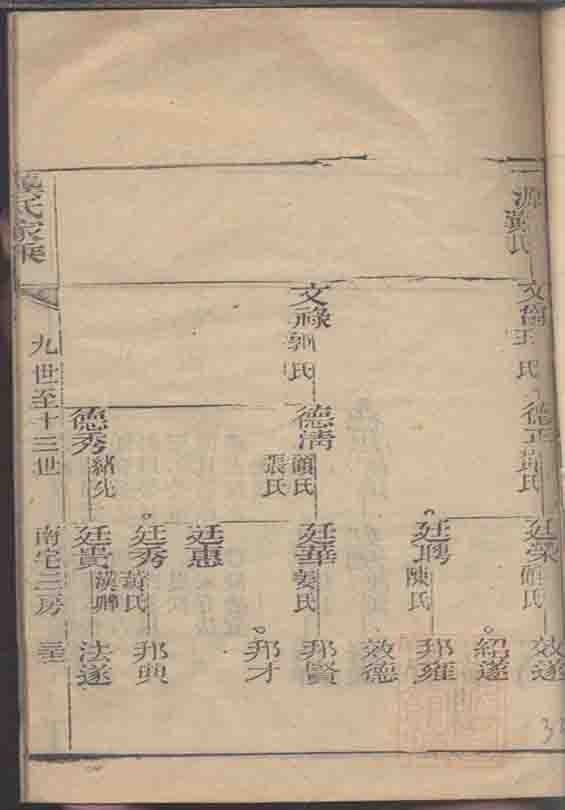 源
氏
文
氏
德
氏
廷榮
顧氏
效遂
紹遂
廷聘
陳氏
邦雍
效德
文祿
郭氏
德清
顧氏
張氏
廷華
姜氏
邦賢
邦才
廷惠
廷秀
黃氏
邦典
德秀
緒先
廷貴
漢卿
法遂
氏家乘
九世至十三世
南宅三房